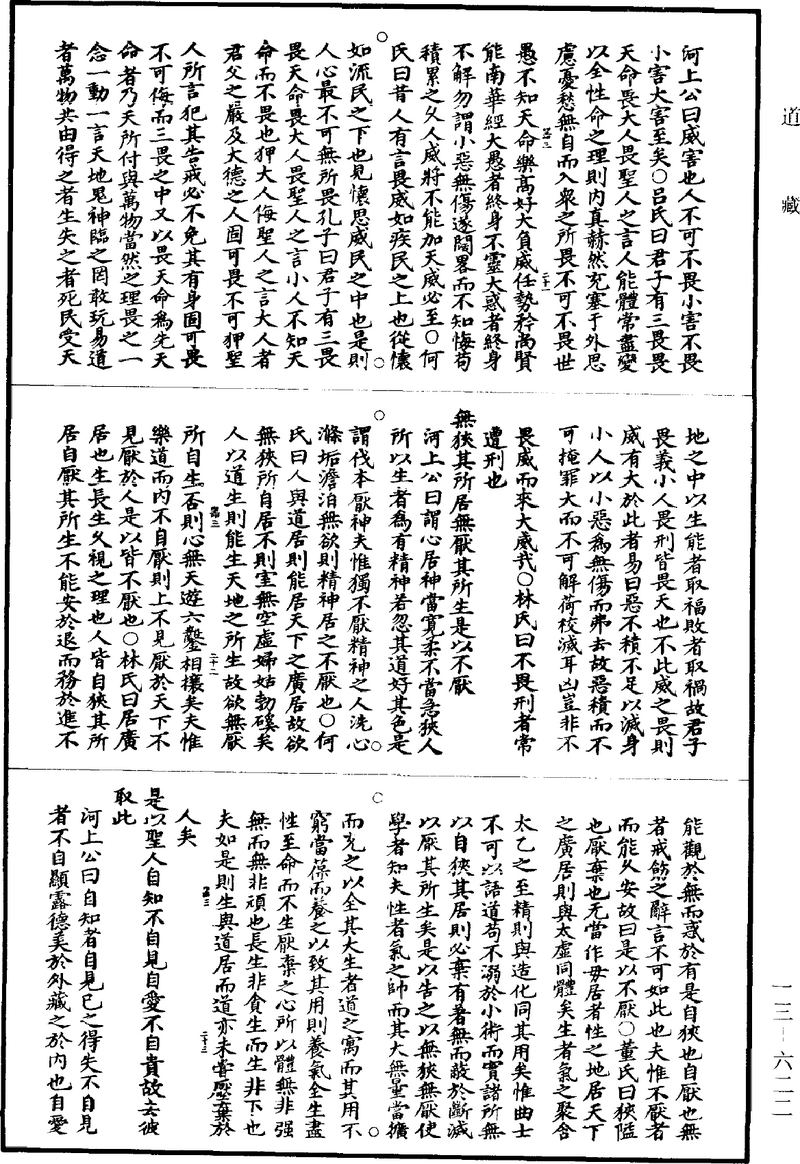 道藏
河上公曰威害也人不可不畏小害不畏
小害大害至矣〇呂氏曰君子有三畏畏
天命畏大人畏聖人之言人能體常盡變
以全性命之理則內真赫然充塞于外思
慮憂愁無自而入衆之所畏不可不畏世
愚不知天命樂高好大負威任勢矜尚賢
能南華經大愚者終身不靈大惑者終身
不解勿謂小惡無傷遂闊畧而不知悔苟
積累之久人威將不能加天威必至〇何
氏曰昔人有言畏威如疾民之上也從懷
如流民之下也見懷思威民之中也是則
人心最不可無所畏孔子曰君子有三畏
畏天命畏大人畏聖人之言小人不知天
命而不畏也狎大人侮聖人之言大人者
君父之嚴及大德之人固可畏不可狎聖
人所言犯其告戒必不免其有身固可畏
不可侮而三畏之中又以畏天命為先天
命者乃天所付與萬物當然之理畏之一
念一動一言天地鬼神臨之罔敢玩易道
者萬物共由得之者生失之者死民受天
地之中以生能者取福敗者取禍故君子
畏義小人畏刑皆畏天也不此威之畏則
威有大於此者易曰惡不積不足以滅身
小人以小惡為無傷而弗去故惡積而不
可掩罪大而不可解荷校滅耳凶豈非不
畏威而來大威哉〇林氏曰不畏刑者常
遭刑也
無狹其所居無厭其所生是以不厭
河上公曰謂心居神當寬柔不當急狹人
所以生者為有精神若忽其道好其色是
謂伐本厭神夫惟獨不厭精神之人洗心
滌垢澹泊無欲則精神居之不厭也〇何
氏曰人與道居則能居天下之廣居故欲
無狹所自居不則室無空虛婦姑勃磎矣
人以道生則能生天地之所生故欲無厭
所自生否則心無天遊六鑿相攘矣夫惟
樂道而內不自厭則上不見厭於天下不
見厭於人是以皆不厭也〇林氏曰居廣
居也生長生久視之理也人皆自狹其所
居自厭其所生不能安於退而務於進不
能觀於無而惑於有是自狹也自厭也無
者戒飭之辭言不可如此也夫惟不厭者
而能久安故曰是以不厭〇董氏曰狹隘
也厭棄也无當作毋居者性之地居天下
之廣居則與太虛同體矣生者氣之聚含
太乙之至精則與造化同其用矣惟曲士
不可以語道苟不溺於小術而實諸所無
以自狹其居則必棄有著無而蔽於斷滅
以厭其所生矣是以告之以無狹無厭使
學者知夫性者氣之帥而其大無量當擴
而充之以全其大生者道之寓而其用不
窮當葆而養之以致其用則養氣全生盡
性至命而不生厭棄之心所以體無非强
無而無非頑也長生非貪生而生非下也
夫如是則生與道居而道亦未嘗壓棄於
人矣
是以聖人自知不自見自愛不自貴故去彼
取此
河上公曰自知者自見已之得失不自見
者不自顯露德美於外藏之於內也自愛
一三－六二二